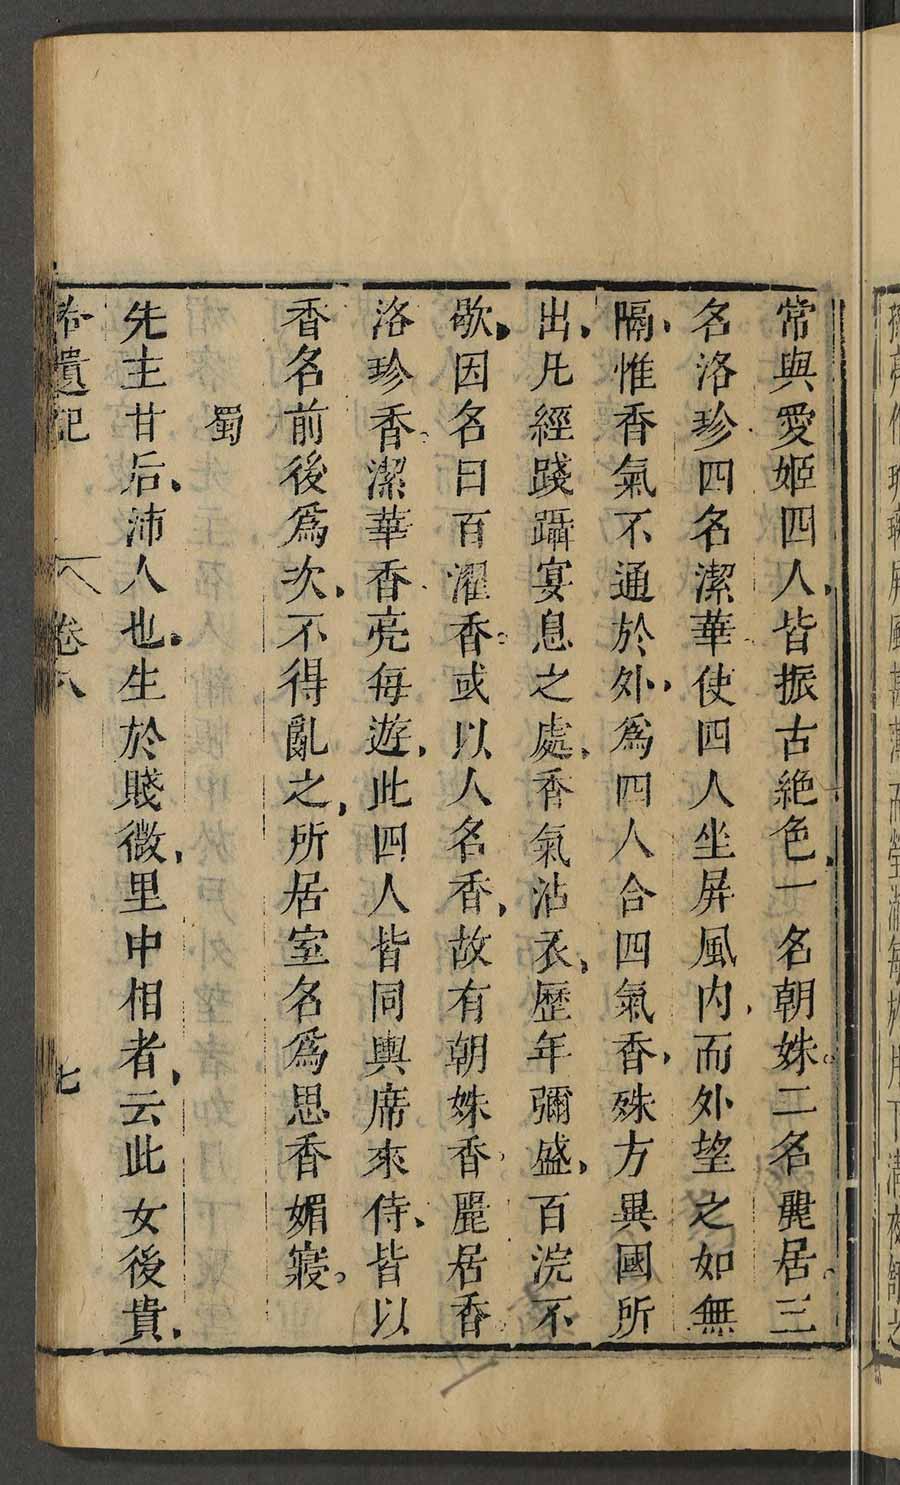 常與愛姬四人皆振古絶色一名朝姝二名麗居三
名洛珍四名潔華使四人坐屏風内而外望之如無
隔惟香氣不通於外爲四人合四氣香殊方異國所
出凡經踐躡宴息之處香氣沾衣歷年彌盛百浣不
歇因名曰百濯香或以人名香故有朝姝香麗居香
洛珍香潔華香亮每遊此四人皆同輿席來侍皆以
香名前後爲次不得亂之所居室名爲思香媚寢
蜀
先主甘后沛人也生於賤微里中相者云此女後貴
遺記 卷八 七